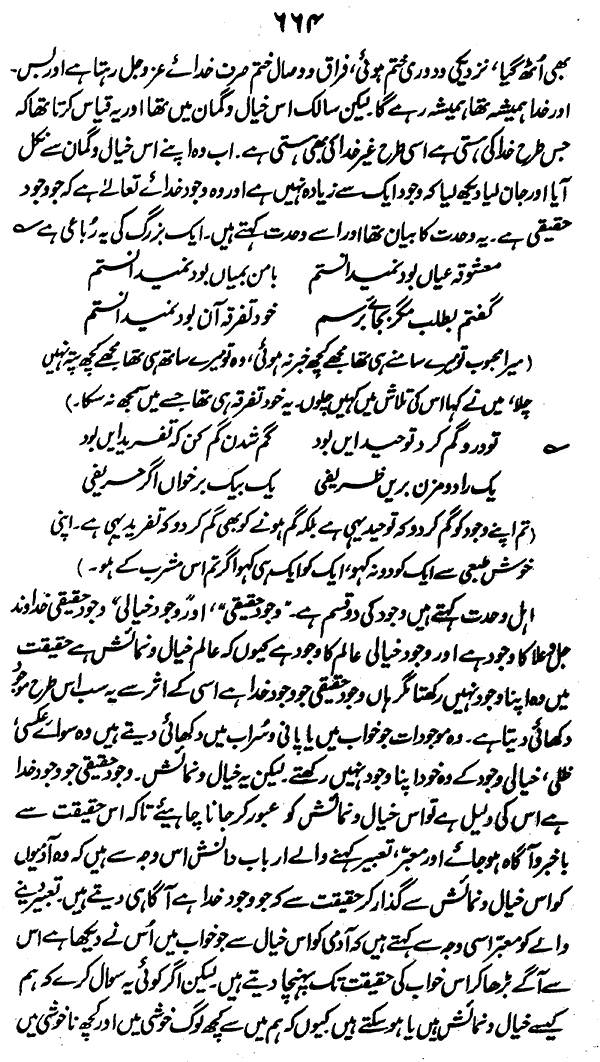 ۶۶۴
بھی اُٹھ گیا، نزدیکی و دوری ختم ہوئی، فراق و وصال ختم صرف خدائے عزوجل رہتا ہے اور بس۔
اور خدا ہمیشہ تھا ہمیشہ رہے گا۔ لیکن سالک اس خیال و گمان میں تھا اور یہ قیاس کرتا تھا کہ
جس طرح خدا کی ہستی ہے اسی طرح غیر خدا کی بھی ہستی ہے۔ اب وہ اپنے اس خیال و گمان سے نکل
آیا اور جان لیا دیکھ لیا کہ وجود ایک سے زیادہ نہیں ہے اور وہ وجود خدائے تعالےٰ ہے کہ جو وجود
حقیقی ہے۔ یہ وحدت کا بیان تھا اور اسے وحدت کہتے ہیں۔ ایک بزرگ کی یہ رُباعی ہے ؎
معشوقہ عیاں بود نمیدانستم بامن بمیاں بود نمیدانستم
گفتم بطلب مگر بجائے برسم خود تفرقہ آن بود نمیدانستم
(میرا محبوب تو میرے سامنے ہی تھا مجھے کچھ خبر نہ ہوئی، وہ تو میرے ساتھ ہی تھا مجھے کچھ پتہ نہیں
چلا، میں نے کہا اس کی تلاش میں کہیں چلوں۔ یہ خود تفرقہ ہی تھا جسے میں سمجھ نہ سکا۔)
؎ تو درو گم کر د توحید ایں بود گم شدن گم کن کہ تفرید ایں بود
یک را دو مزن بریں ظریفی یک بیک بر خواں اگر حریفی
(تم اپنے وجود کو گم کر دو کہ توحید یہی ہے بلکہ گم ہونے کو بھی گم کر دو کہ تفرید یہی ہے۔ اپنی
خوش طبعی سے ایک کو دو نہ کہو، ایک کو ایک ہی کہو اگر تم اس مشرب کے ہو۔)
اہل وحدت کہتے ہیں وجود کی دو قسم ہے۔ "وجود حقیقی"، اور "وجود خیالی" وجود حقیقی خداوند
جل وعلا کا وجود ہے اور وجود خیالی عالم کا وجود ہے کیوں کہ عالم خیال و نمائش ہے حقیقت
میں وہ اپنا وجود نہیں رکھتا مگر ہاں وجود حقیقی جو وجود خدا ہے اسی کے اثر سے یہ سب اس طرح موجود
دکھائی دیتا ہے۔ وہ موجودات جو خواب میں یا پانی و سُراب میں دکھائی دیتے ہیں وہ سوائے عکسی
ظلی، خیالی وجود کے وہ خود اپنا وجود نہیں رکھتے۔ لیکن یہ خیال و نمائش۔ وجود حقیقی جو وجود خدا
ہے اس کی دلیل ہے تو اس خیال و نمائش کو عبور کر جانا چاہیئے تاکہ اس حقیقت سے
باخبر و آگاہ ہو جائے اور معبّر، تعبیر کہنے والے ارباب دانش اس وجہ سے ہیں کہ وہ آدمیوں
کو اس خیال و نمائش سے گذار کر حقیقت سے کہ جو وجود خدا ہے آگاہی دیتے ہیں۔ تعبیر دینے
والے کو معبّر اسی وجہ سے کہتے ہیں کہ آدمی کو اس خیال سے جو خواب میں اُس نے دیکھا ہے اس
سے آگے بڑھا کر اس خواب کی حقیقت تک پہنچا دیتے ہیں۔ لیکن اگر کوئی یہ سوال کرے کہ ہم
کیسے خیال و نمائش ہیں یا ہو سکتے ہیں کیوں کہ ہم میں سے کچھ لوگ خوشی میں اور کچھ ناخوشی میں